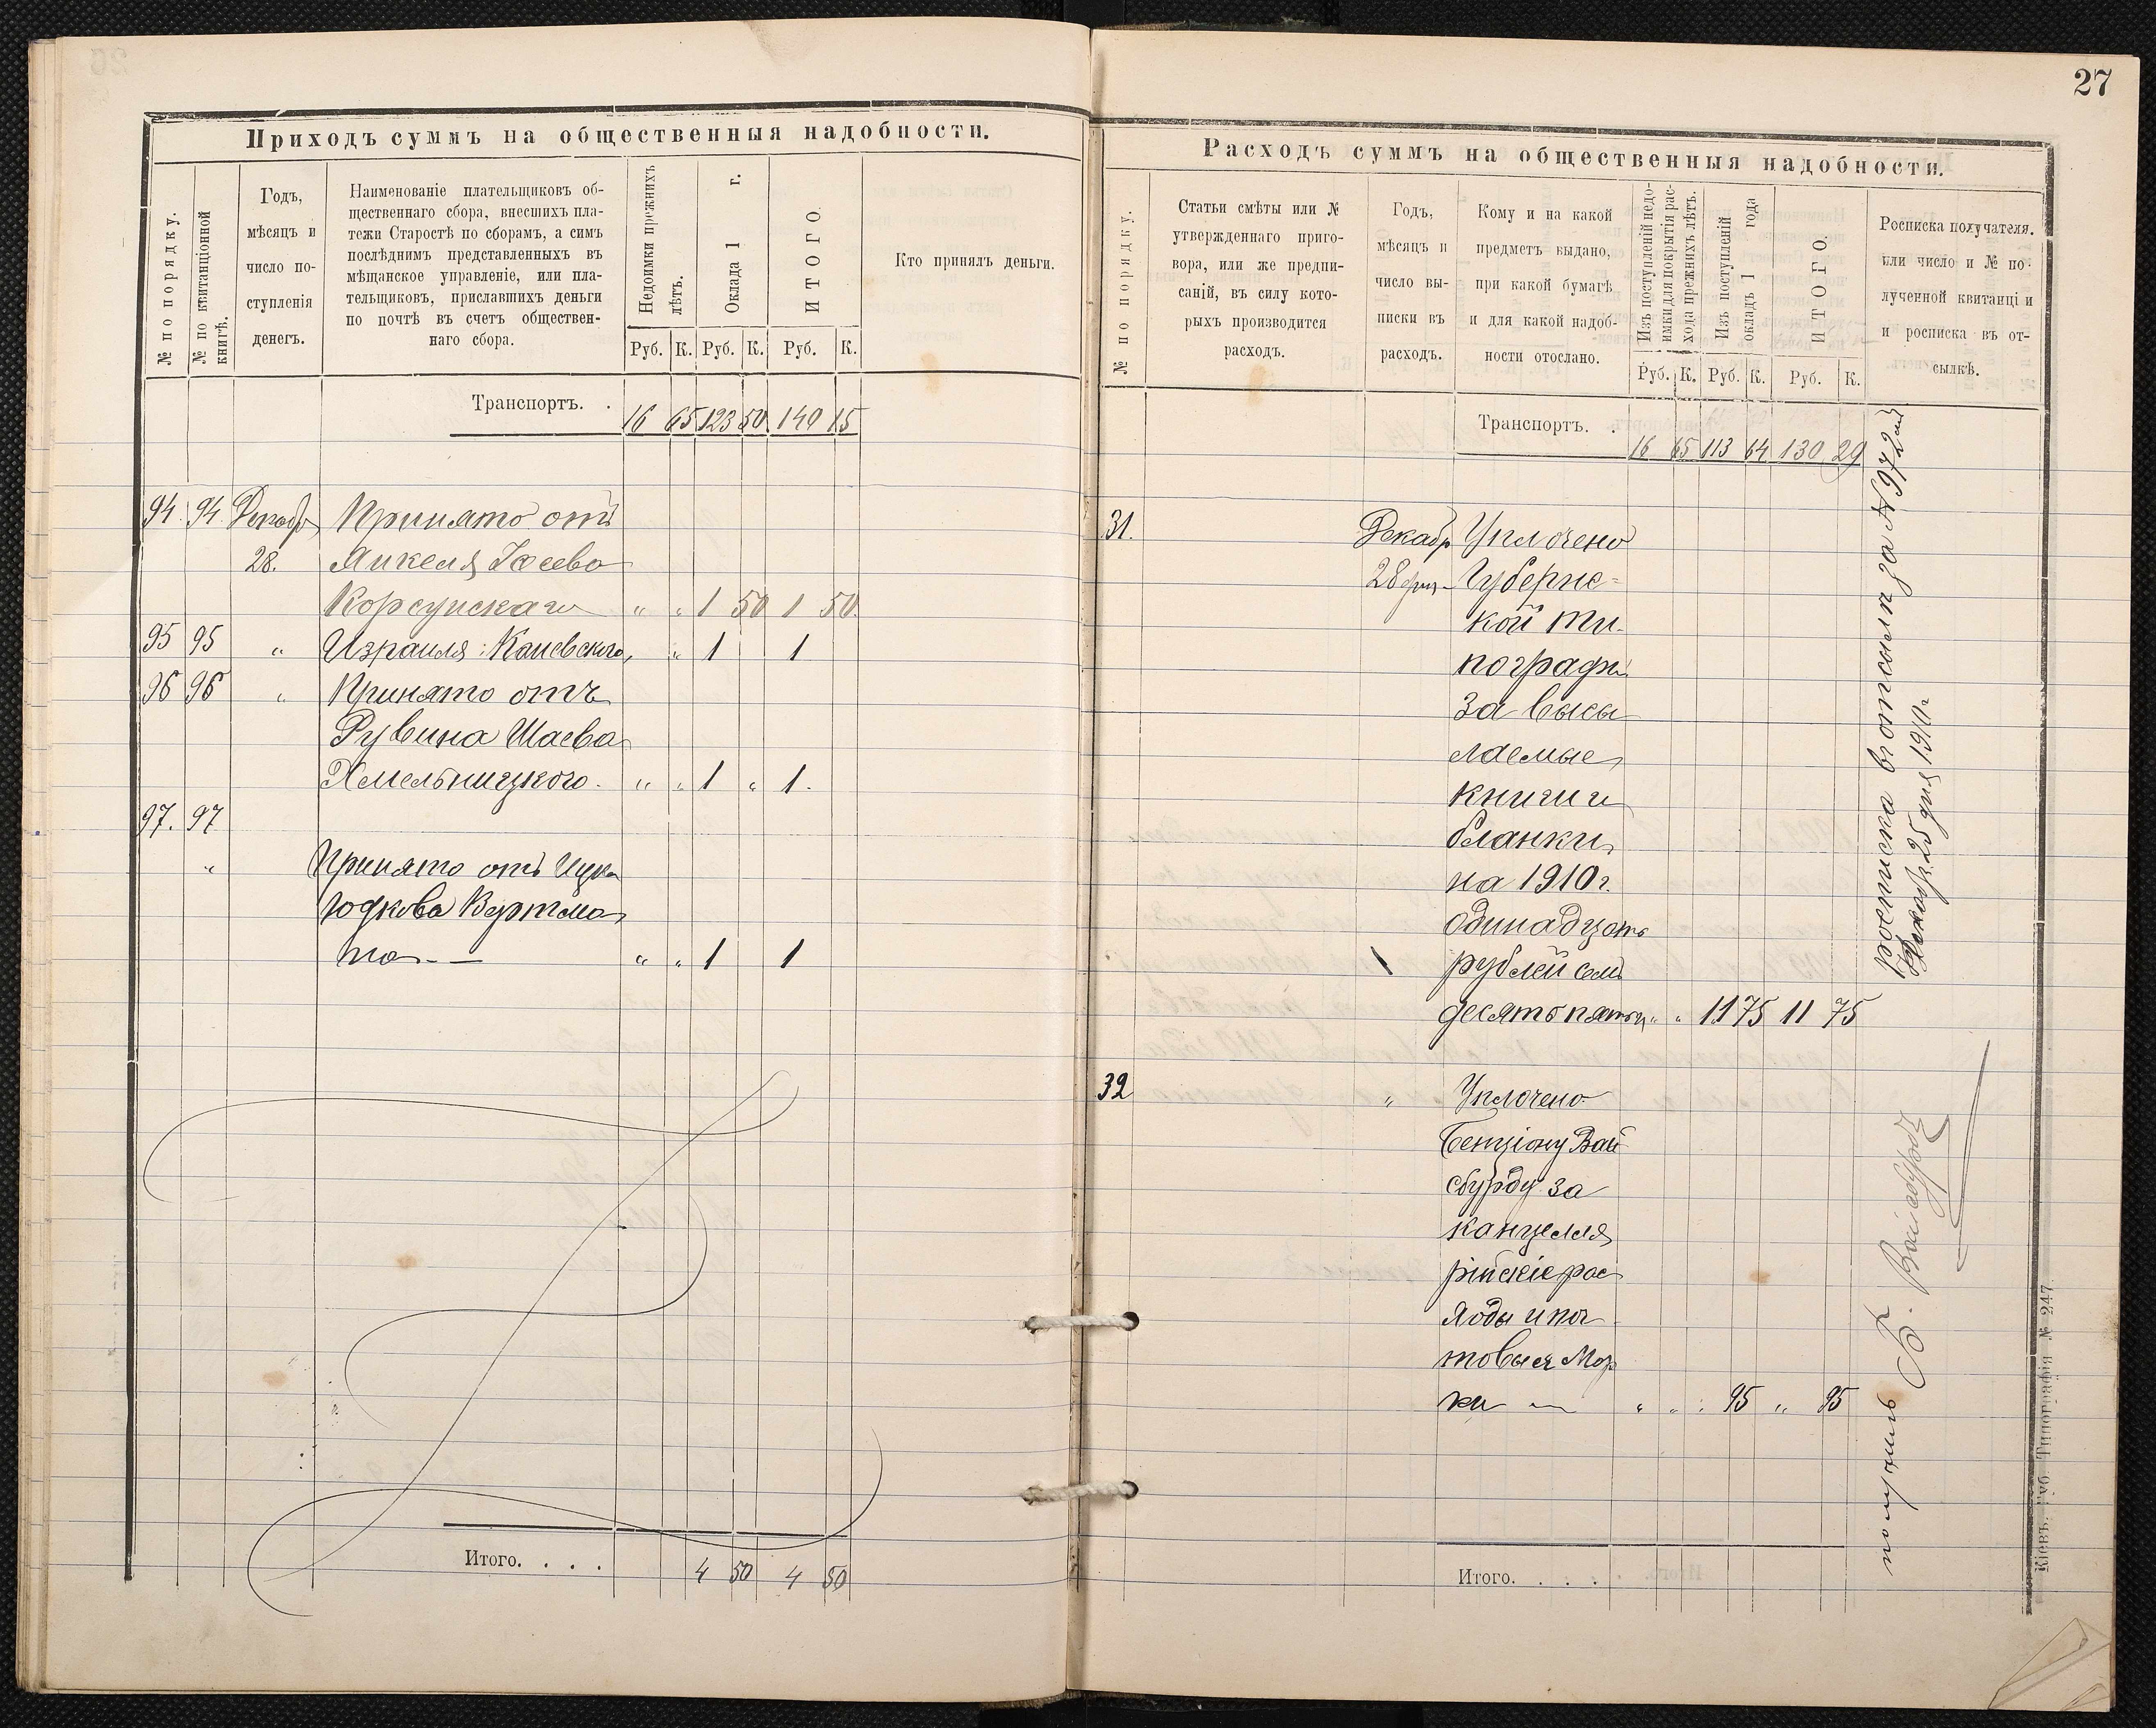 27
Приходъ суммъ на общественныя надобности.
№ по порядку.
№ по квитанціонной книгѣ.
Годъ,
мѣсяцъ и
число по-
ступленія
денегъ.
Наименованіе плательщиковъ об-
щественнаго сбора, внесшихъ пла-
тежи Старостѣ по сборамъ, а симъ
послѣднимъ представленныхъ въ
мѣщанское управленіе, или пла-
тельщиковъ, приславшихъ деньги
по почтѣ въ счетъ обществен-
наго сбора.
Недоимки прежнихъ
лѣтъ.
Оклада 1 г.
ИТОГО.
Кто принялъ деньги.
Руб. К. Руб. К. Руб. К.
Транспортъ. . 16 65 123 50 140 15
94. 94. Декабр Принято отъ
28. Янкеля
Корсунскаго „ „ 1 50 1 50.
95 95 „ Израиля Каневского „ „ 1 1
96 96 „ Принято отъ
Рувина Шаева
Хмельницкого. „ „ 1 „ 1.
97. 97
„ Принято отъ Ицка
Юдкова
на — „ „ 1 1
Итого. . . . 4 50 4 50
Расходъ суммъ на общественныя надобности.
№ по порядку.
Статьи смѣты или №
утвержденнаго приго-
вора, или же предпи-
саній, въ силу кото-
рыхъ производится
расходъ.
Годъ,
мѣсяцъ и
число вы-
писки въ
расходъ.
Кому и на какой
предметъ выдано,
при какой бумагѣ
и для какой надоб-
ности отослано.
Изъ поступленій недо-
имки для покрытія рас-
хода прежнихъ лѣтъ.
Изъ поступленій
окладъ 1 года
ИТОГО.
Росписка получателя.
или число и № по-
лученной квитанціи
и росписка въ от-
сылкѣ.
Руб. К. Руб. К. Руб. К.
Транспортъ. . 16 65 113 64 130 29
31. Декабр Уплочено
28 дня Губернс=
кой ти-
пографи
за высы
лаемые
книги и
бланки
на 1910 г.
одинадцать
рублей семь
десять пять к „ „ 11 75 11 75
росписка в отсылк за № 972
Декабр. 25 дня 1910 г
32 „ Уплочено
Бенціону Вай
сбурду за
канцеля
рійскіе рас
ходы и поч
товые мар
ки — „ „ „ 95 „ 95
получилъ Б. Вайсбурдъ
Итого. . . . .
Кіевъ. Губ. Типографія № 247